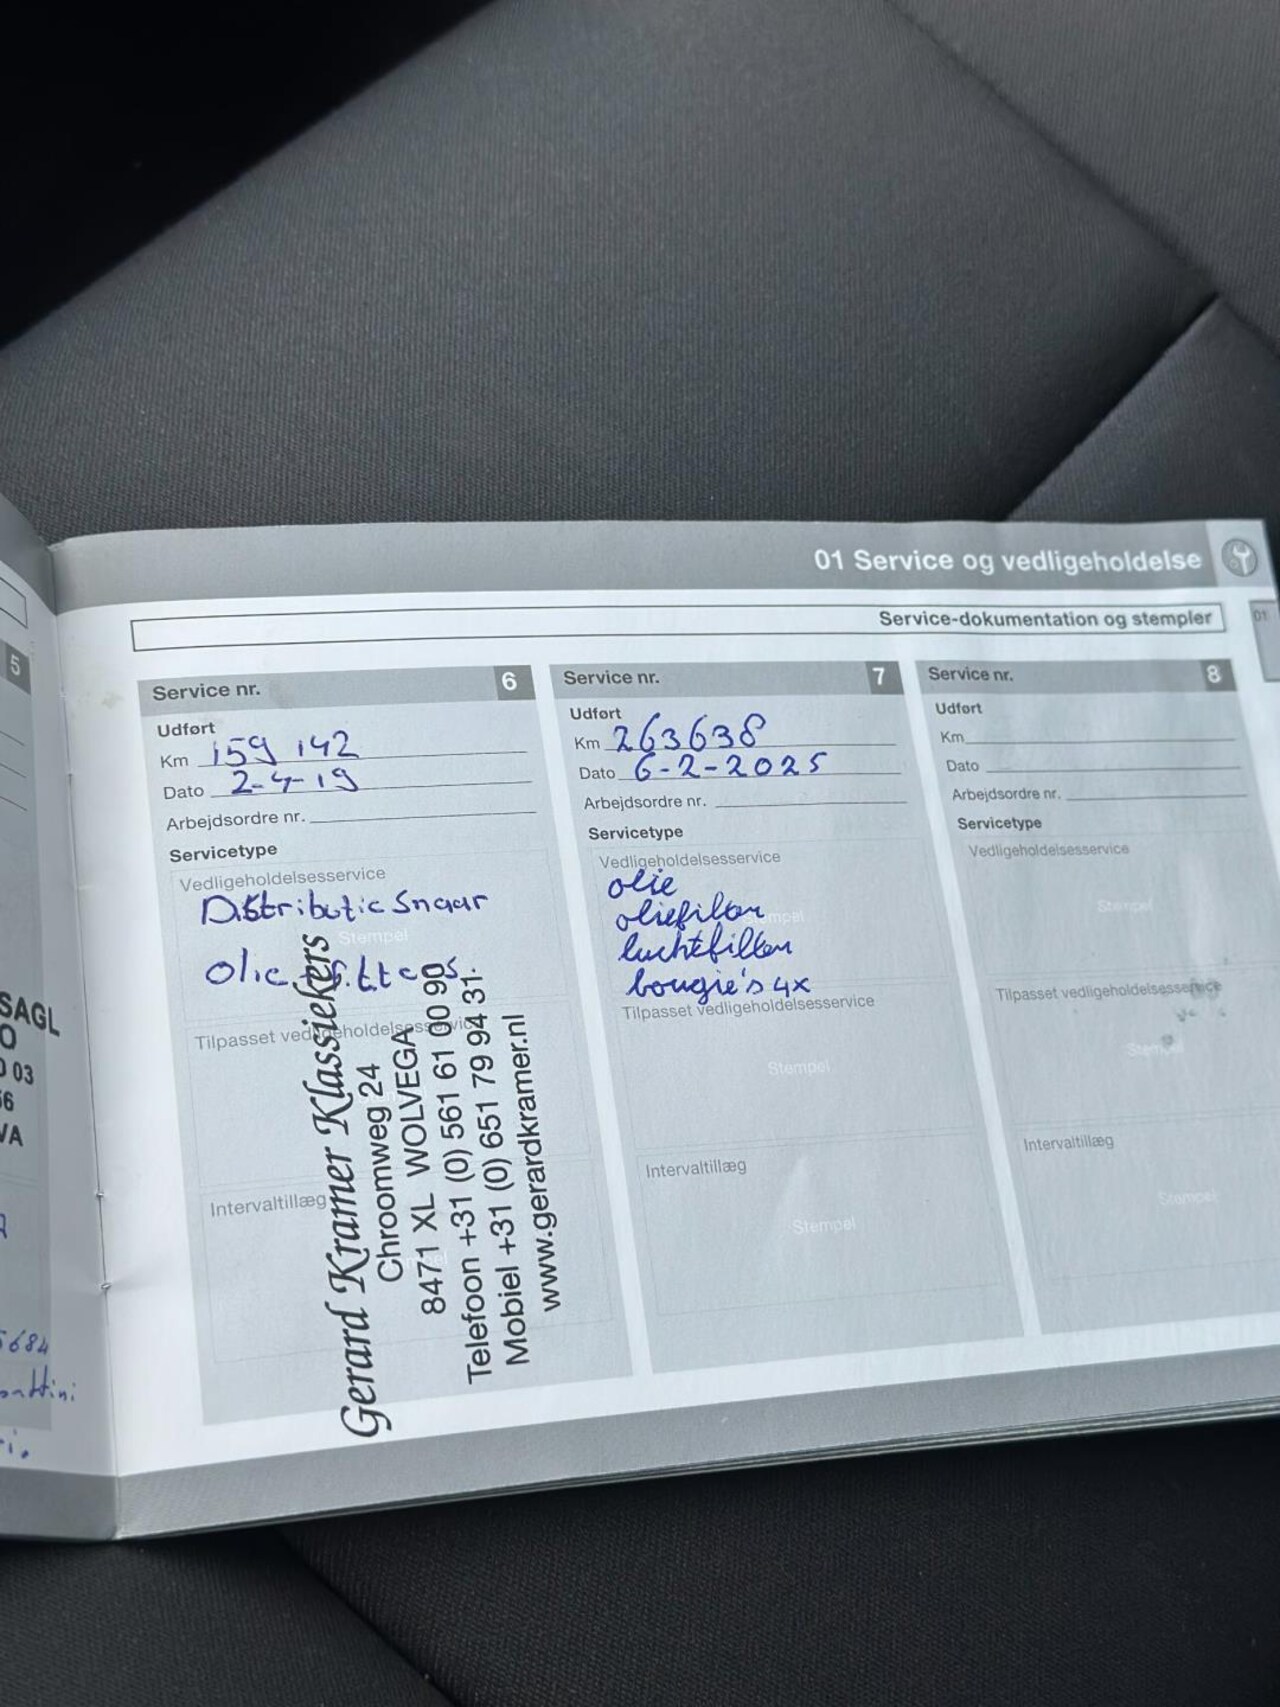 01 Service og vedligeholdelse
Service-dokumentation og stempler
01
5
SAGL
O
03
VA
5684
Service nr. 6
Udført
Km 159 142
Dato 2-4-19
Arbejdsordre nr.
Servicetype
Vedligeholdelsesservice
Distributie Snaar
Stempel
Olie filters.
Tilpasset vedligeholdelsesservice
Intervaltillæg
Gerard Kramer Klassiekers
Chroomweg 24
8471 XL WOLVEGA
Telefoon +31 (0) 561 61 00 90
Mobiel +31 (0) 651 79 94 31
www.gerardkramer.nl
Service nr. 7
Udført
Km 263638
Dato 6-2-2025
Arbejdsordre nr.
Servicetype
Vedligeholdelsesservice
olie
oliefilter
Stempel
luchtfilter
bougie's 4x
Tilpasset vedligeholdelsesservice
Stempel
Intervaltillæg
Stempel
Service nr. 8
Udført
Km
Dato
Arbejdsordre nr.
Servicetype
Vedligeholdelsesservice
Stempel
Tilpasset vedligeholdelsesservice
Stempel
Intervaltillæg
Stempel